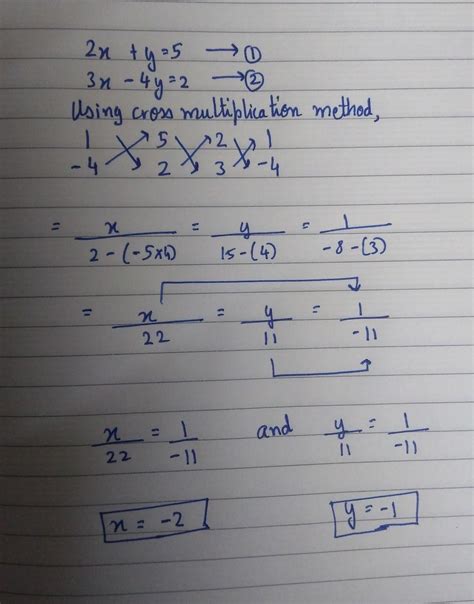 2x + y = 5 → ①
3x - 4y = 2 → ②
Using cross multiplication method,
1 5 2 1
-4 2 3 -4
= x / 2-(-5x4) = y / 15-(4) = 1 / -8-(3)
= x / 22 = y / 11 = 1 / -11
x / 22 = 1 / -11 and y / 11 = 1 / -11
x = -2 y = -1